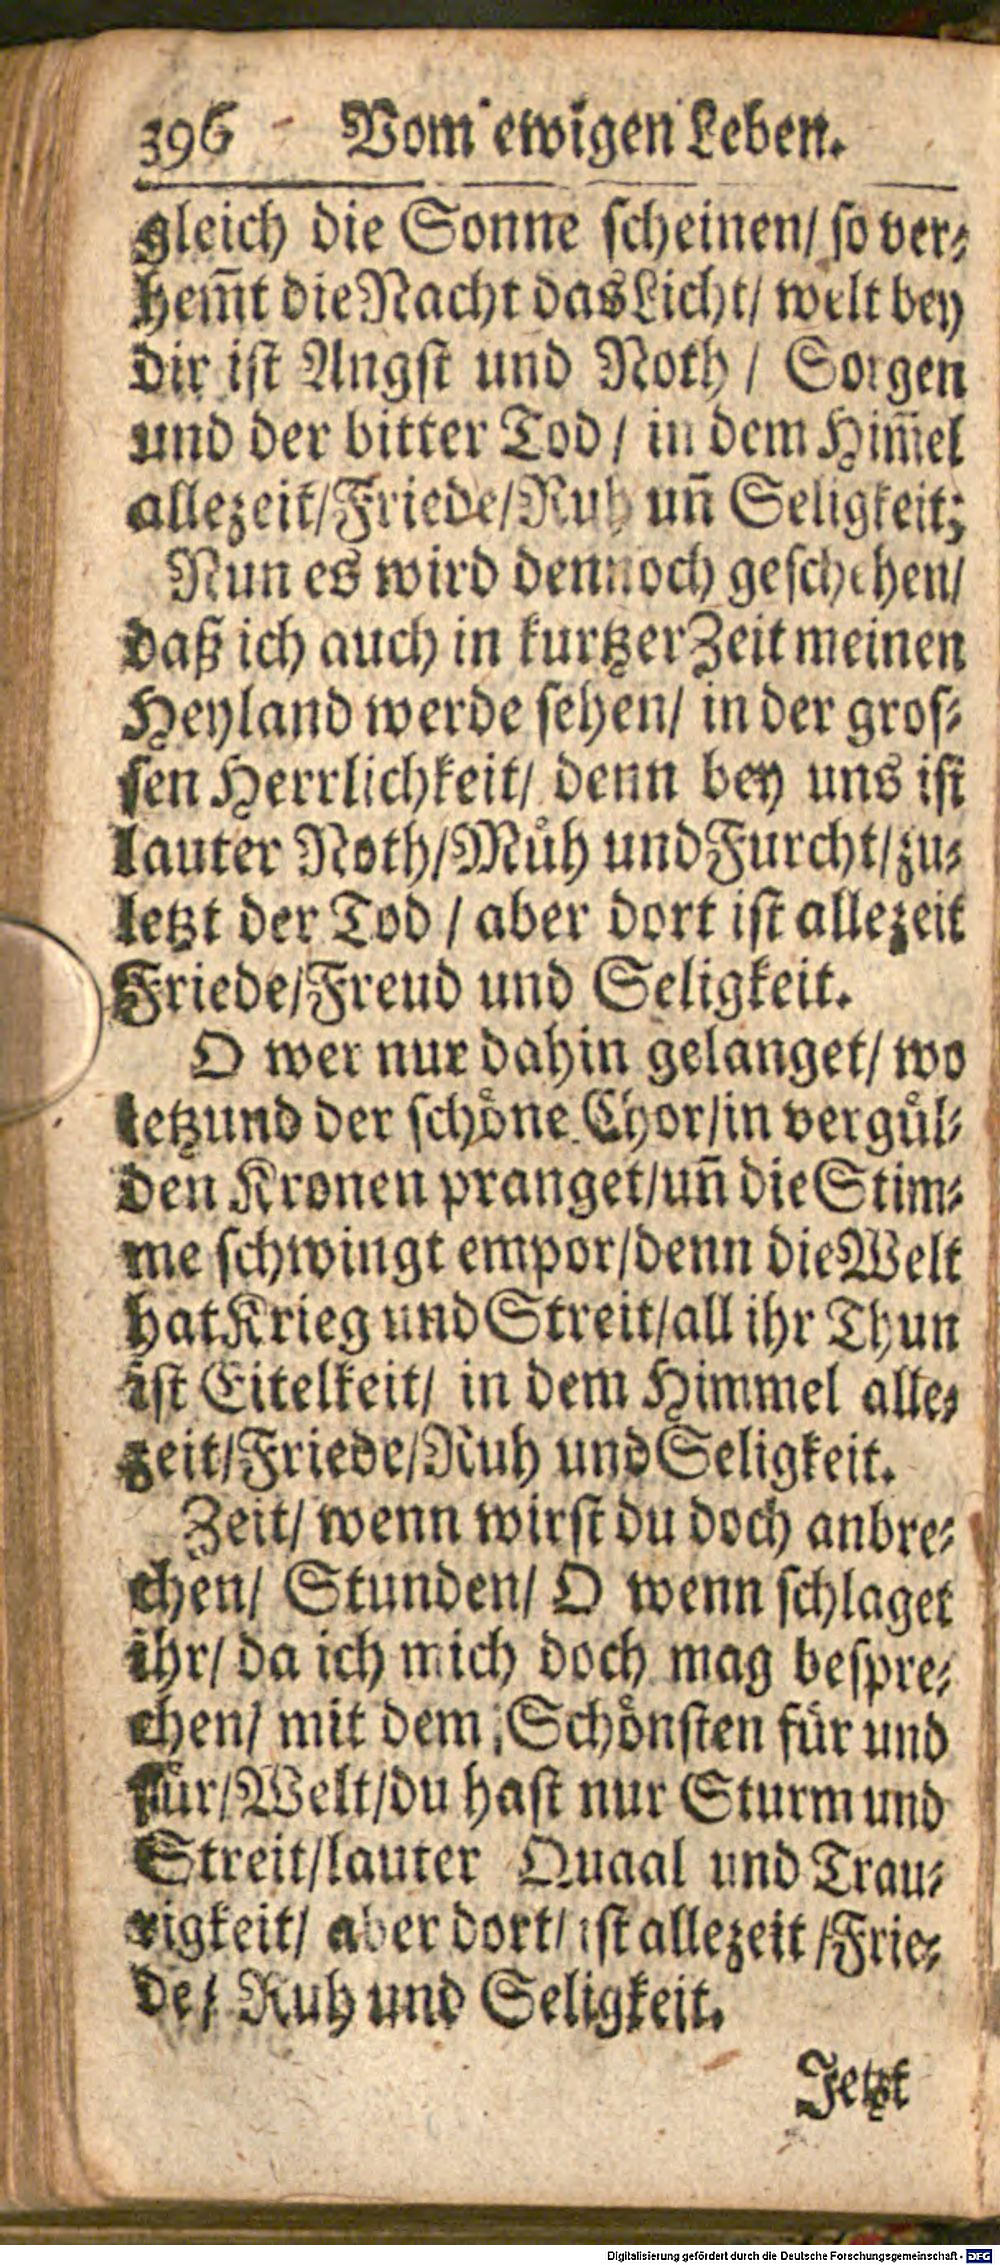 396 Vom ewigen Leben.
gleich die Sonne scheinen/ so ver-
hem̃t die Nacht das Licht/ welt bey
dir ist Angst und Noth / Sorgen
und der bitter Tod/ in dem Him̃el
allezeit/Friede/Ruh uñ Seligkeit;
Nun es wird dennoch geschehen/
daß ich auch in kurtzer Zeit meinen
Heyland werde sehen/ in der gros-
sen Herrlichkeit/ denn bey uns ist
lauter Noth/Muͤh und Furcht/zu-
letzt der Tod / aber dort ist allezeit
Friede/Freud und Seligkeit.
O wer nur dahin gelanget/ wo
ietzund der schoͤne Chor/in verguͤl-
den Kronen pranget/uñ die Stim-
me schwingt empor/denn die Welt
hat Krieg und Streit/all ihr Thun
ist Eitelkeit/ in dem Himmel alle-
zeit/Friede/Ruh und Seligkeit.
Zeit/ wenn wirst du doch anbre-
chen/ Stunden/ O wenn schlaget
ihr/ da ich mich doch mag bespre-
chen/ mit dem Schoͤnsten fuͤr und
fuͤr/Welt/du hast nur Sturm und
Streit/lauter Quaal und Trau-
rigkeit/ aber dort/ ist allezeit /Frie-
de/ Ruh und Seligkeit.
Jetzt
Digitalisierung gefördert durch die Deutsche Forschungsgemeinschaft - DFG